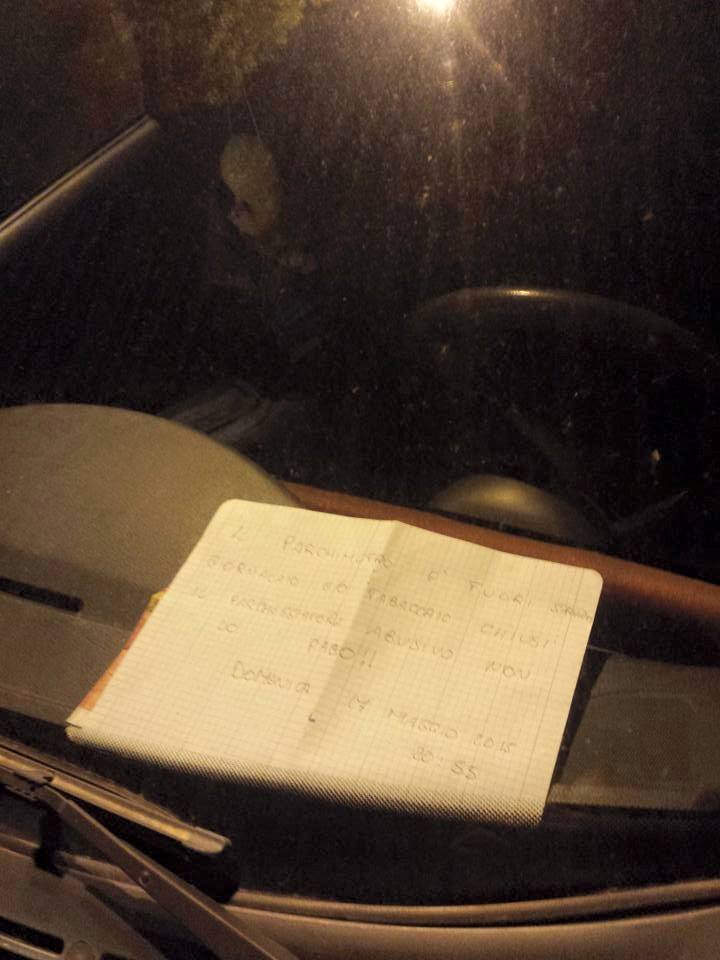 IL PARCHIMETRO E' FUORI SERVIZIO
GIORNALAIO E/O TABACCAIO CHIUSI
IL PARCHEGGIATORE ABUSIVO NON
LO PAGO!!
DOMENICA 17 MAGGIO 2015
20:55